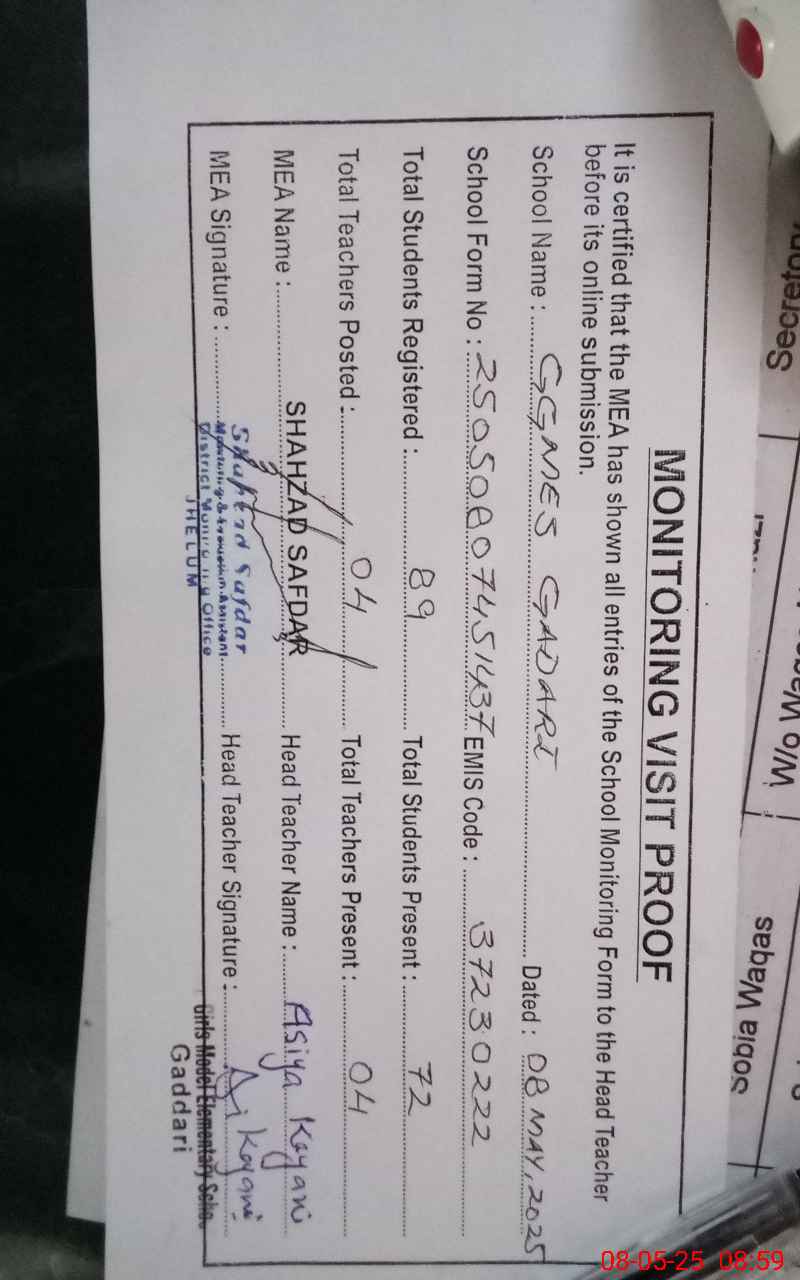 MONITORING VISIT PROOF
It is certified that the MEA has shown all entries of the School Monitoring Form to the Head Teacher
before its online submission.
School Name : GGMES GADARI Dated : 08 MAY, 2025
School Form No : 25050807451437 EMIS Code : 37230222
Total Students Registered : 89 Total Students Present : 72
Total Teachers Posted : 04 Total Teachers Present : 04
MEA Name : SHAHZAD SAFDAR Head Teacher Name : Asiya Kayani
MEA Signature : Head Teacher Signature :
Shahzad Safdar
Monitoring & Evaluation Assistant
District Monitoring Office
JHELUM
Girls Model Elementary Schoo
Gaddari
W/o Waqas
Sobia Waqas
08-05-25 08:59